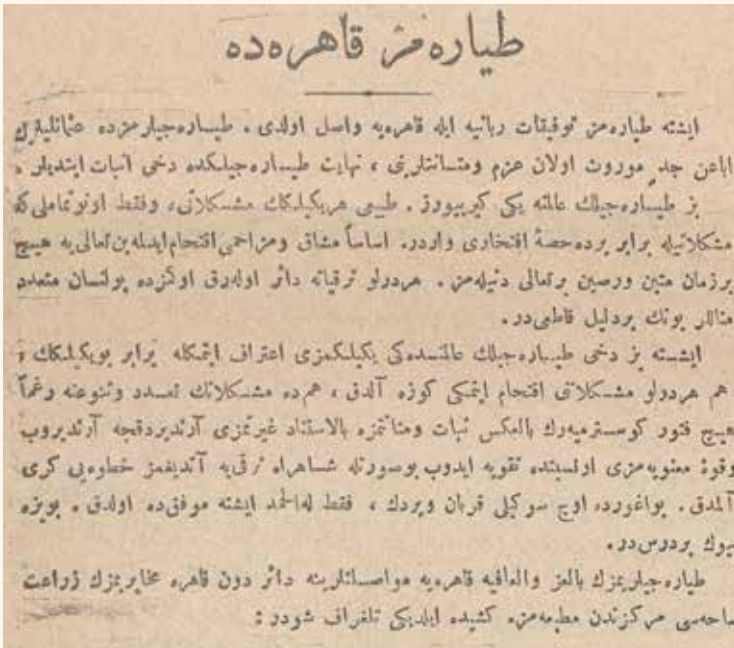 طیاره‌مز قاهره‌ده
ایشته طیاره‌مز توفیقات ربانیه ایله قاهره‌یه واصل اولدی . طیاره‌جیلرمزده عثمانلیلرك
اباعن جدٍ موروث اولان عزم ومتانتلرینی ، نهایت طیاره‌جیلکده دخی اثبات ایتدیلر .
بز طیاره‌جیلك عالمنه یکی کیرییورز . طبیعی هریکیلکك مشکلاتی ، وفقط اونوتماملی‌که
مشکلاتیله برابر برده حصهٔ افتخاری واردر. اساساً مشاق ومزاحمی اقتحام ایدیله‌ین تعالی‌یه هیچ
برزمان متین ورصین برتعالی دنیله‌مز . هردرلو ترقیاته دائر اوله‌رق اوکزده بولنان متعدد
مثاللر بونك بردلیل قاطعی‌در .
ایشته بز دخی طیاره‌جیلك عالمنده‌کی یکیلکمزی اعتراف ایتمکله برابر بویکیلکك ،
هم هردرلو مشکلاتی اقتحام ایتمکی کوزه آلدق ، هم‌ده مشکلاتك تعدد وتنوعنه رغماً
هیچ فتور کوسترمیه‌رك بالعکس ثبات ومتانتمزه بالاستناد غیرتمزی آرتدیردقجه آرتدیروب
وقوهٔ معنویه‌مزی اولسبتده تقویه ایدوب بوصورتله شاهراه ترقی‌یه آتدیغمز خطوه‌یی کری
آلمدق . بواغورده اوچ سوکیلی قربان ویردك ، فقط له‌الحمد ایشته موفق‌ده اولدق . بوبزه
بیوك بردرس‌در .
طیاره‌جیلریمزك بالعز والعافیه قاهره‌یه مواصلتلرینه دائر دون قاهره مخابریمزك زراعت
ساحه‌سی مرکزندن مطبعه‌مزه کشیده ایلدیکی تلغراف شودر :